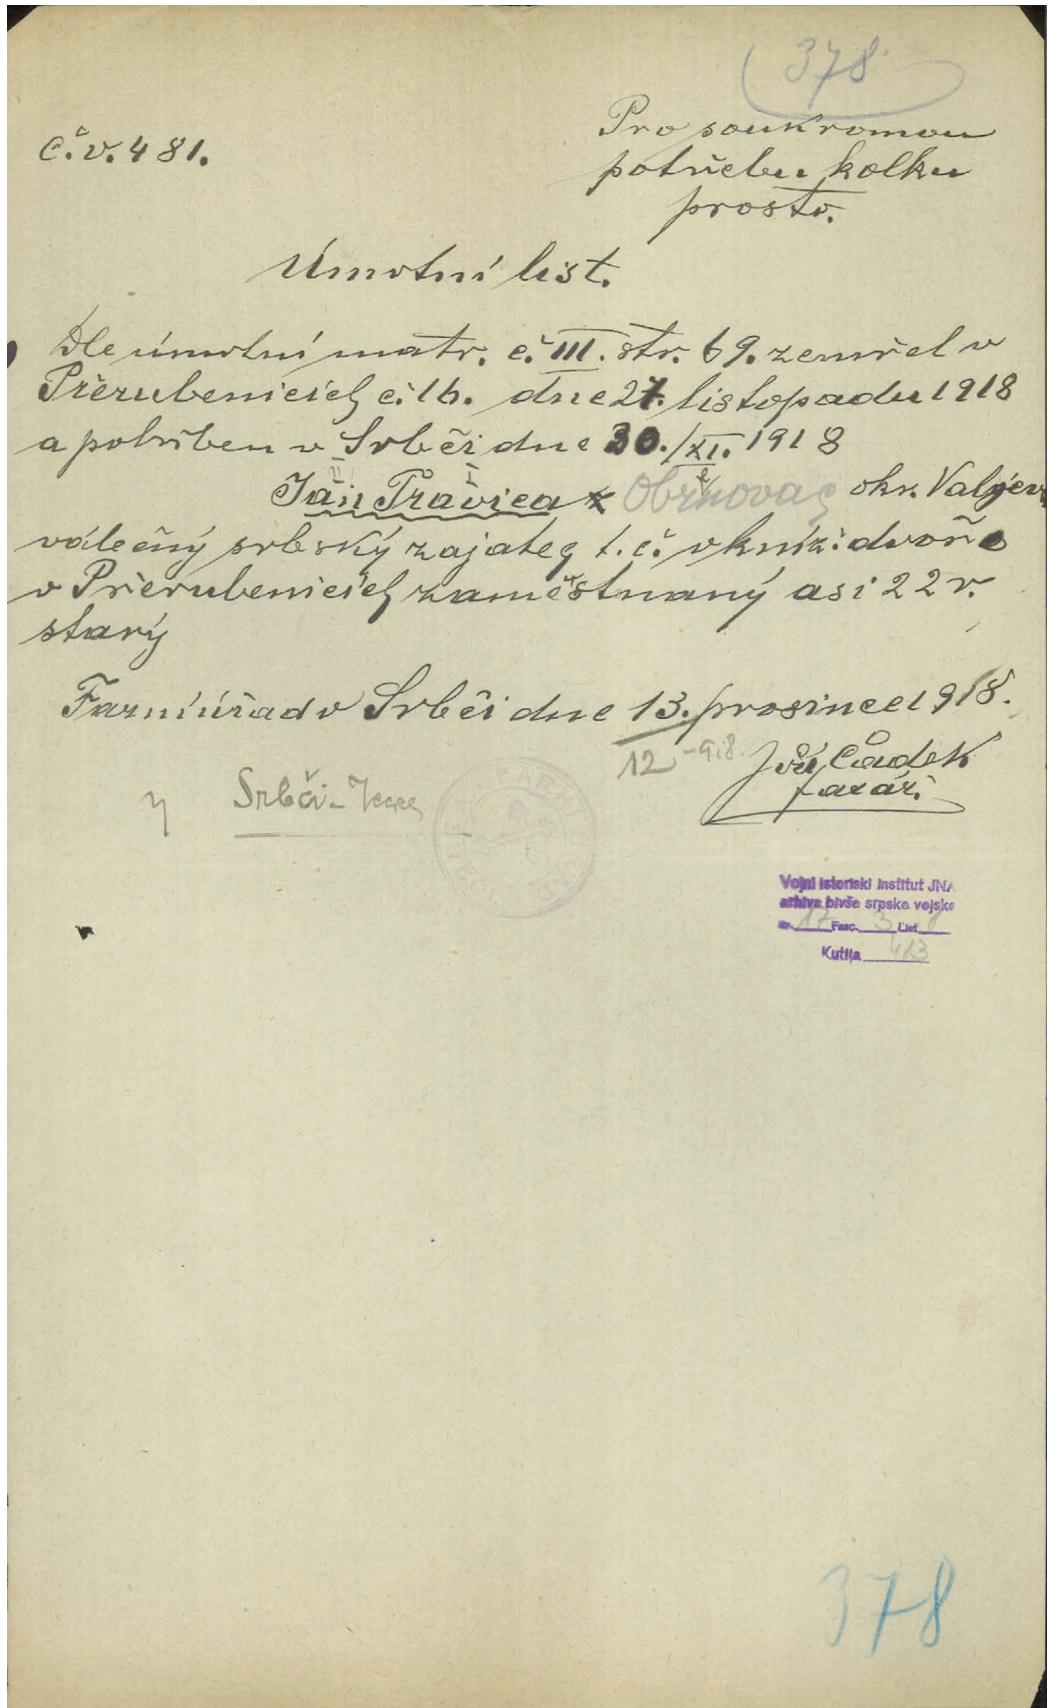 378
Č.v. 481.
Pro soukromou
potřebu kolku
prosto.
Úmrtní list.
Dle úmrtní matr. č. III. str. 69. zemřel v
Přerubenicích č. 16. dne 27. listopadu 1918
a pohřben v Srbči dne 30./XI. 1918
Jan Travica z Obrnovac okr. Valjevo
válečný srbský zajatec t.č. v kníž. dvoře
v Přerubenicích zaměstnaný asi 22 r.
starý
Farní úřad v Srbči dne 13. prosince 1918.
12
Čadek
farář.
Srbči -
FARNÍ ÚŘAD
Vojni istoriski institut JNA
arhiva bivše srpske vojske
17 Fasc. 3 List
Kutija 413
378